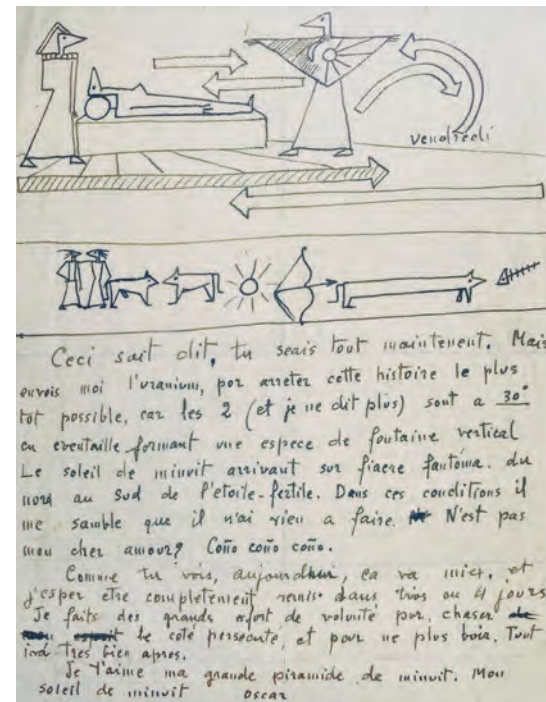 vendredi
Ceci sait dit, tu seais tout maintenent. Mais
envois moi l'uranium, por arreter cette histoire le plus
tot possible, car les 2 (et je ne dit plus) sont a 30°
en eventaille formant une espece de fontaine vertical
Le soleil de minuit arrivant sur fiacre fantóma. du
nord au sud de l'etoile-fertile. Dans ces conditions il
me samble que il n'ai rieu a faire. N'est pas
mon cher amour? Coño coño coño.
Comme tu vois, aujourdhui, ça va miex, et
j'esper etre completement remis dans tros ou 4 jours
Je faits des grands efort de volonté por chaser
le coté persecuté, et pour ne plus boir. Tout
irá tres bien apres.
Je t'aime ma grande piramide de minuit. Mon
soleil de minuit Oscar